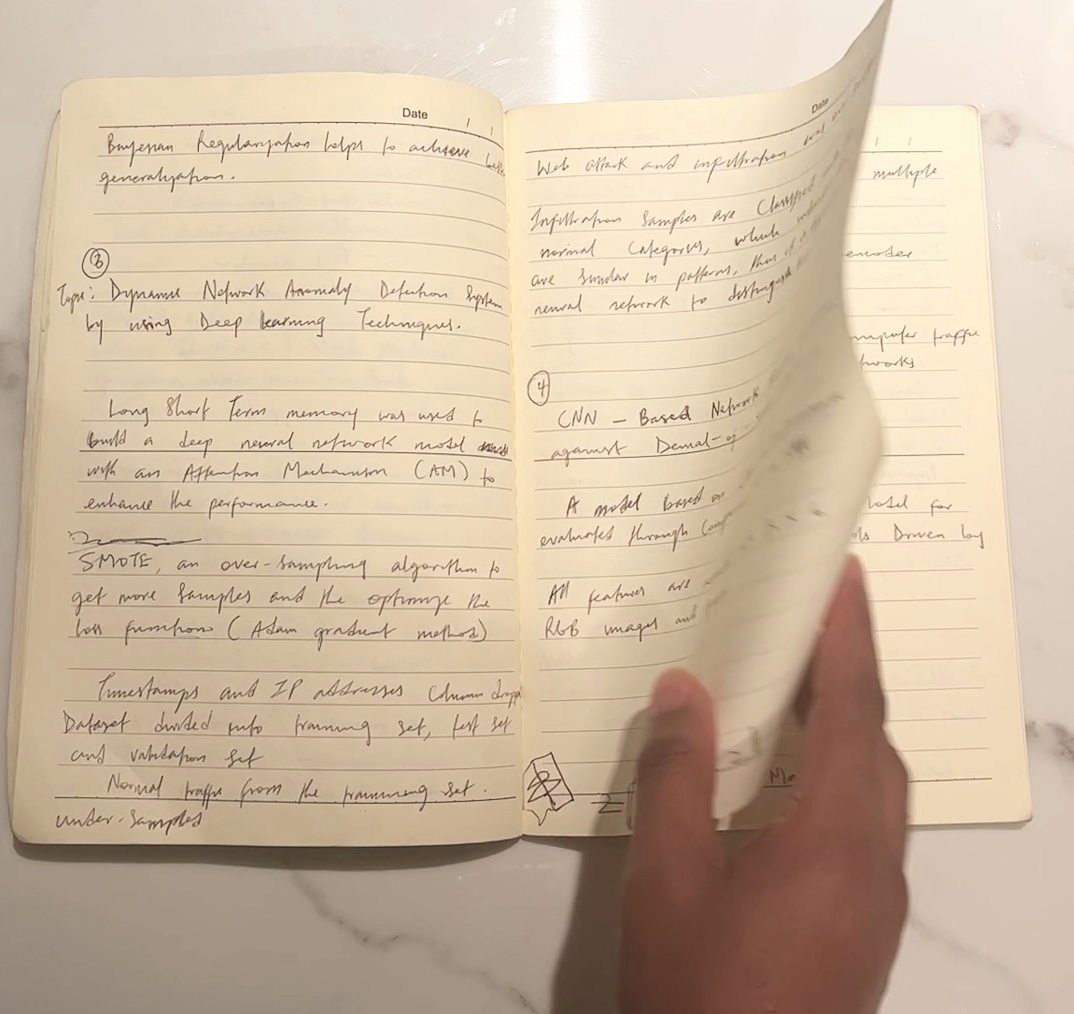 Date / /
Bayesian Regularization helps to achieve
generalization.
3
Topic: Dynamic Network Anomaly Detection System
by using Deep learning Techniques.
Long Short Term memory was used to
build a deep neural network model
with an Attention Mechanism (AM) to
enhance the performance.
SMOTE, an over-sampling algorithm to
get more samples and the optimize the
loss function (Adam gradient method)
Timestamps and IP addresses column
Dataset divided into training set, test set
and validation set
Normal traffic from the training set.
under-samples
Date
Web attack and infiltration
Infiltration samples are classified
normal categories, which
are similar in patterns, thus
neural network to distinguish
4
CNN - Based Network
against Denial-of
A model based on
evaluates through
All features are
RGB images and
2
/ /
multiple
encoder
traffic
for
Driven by